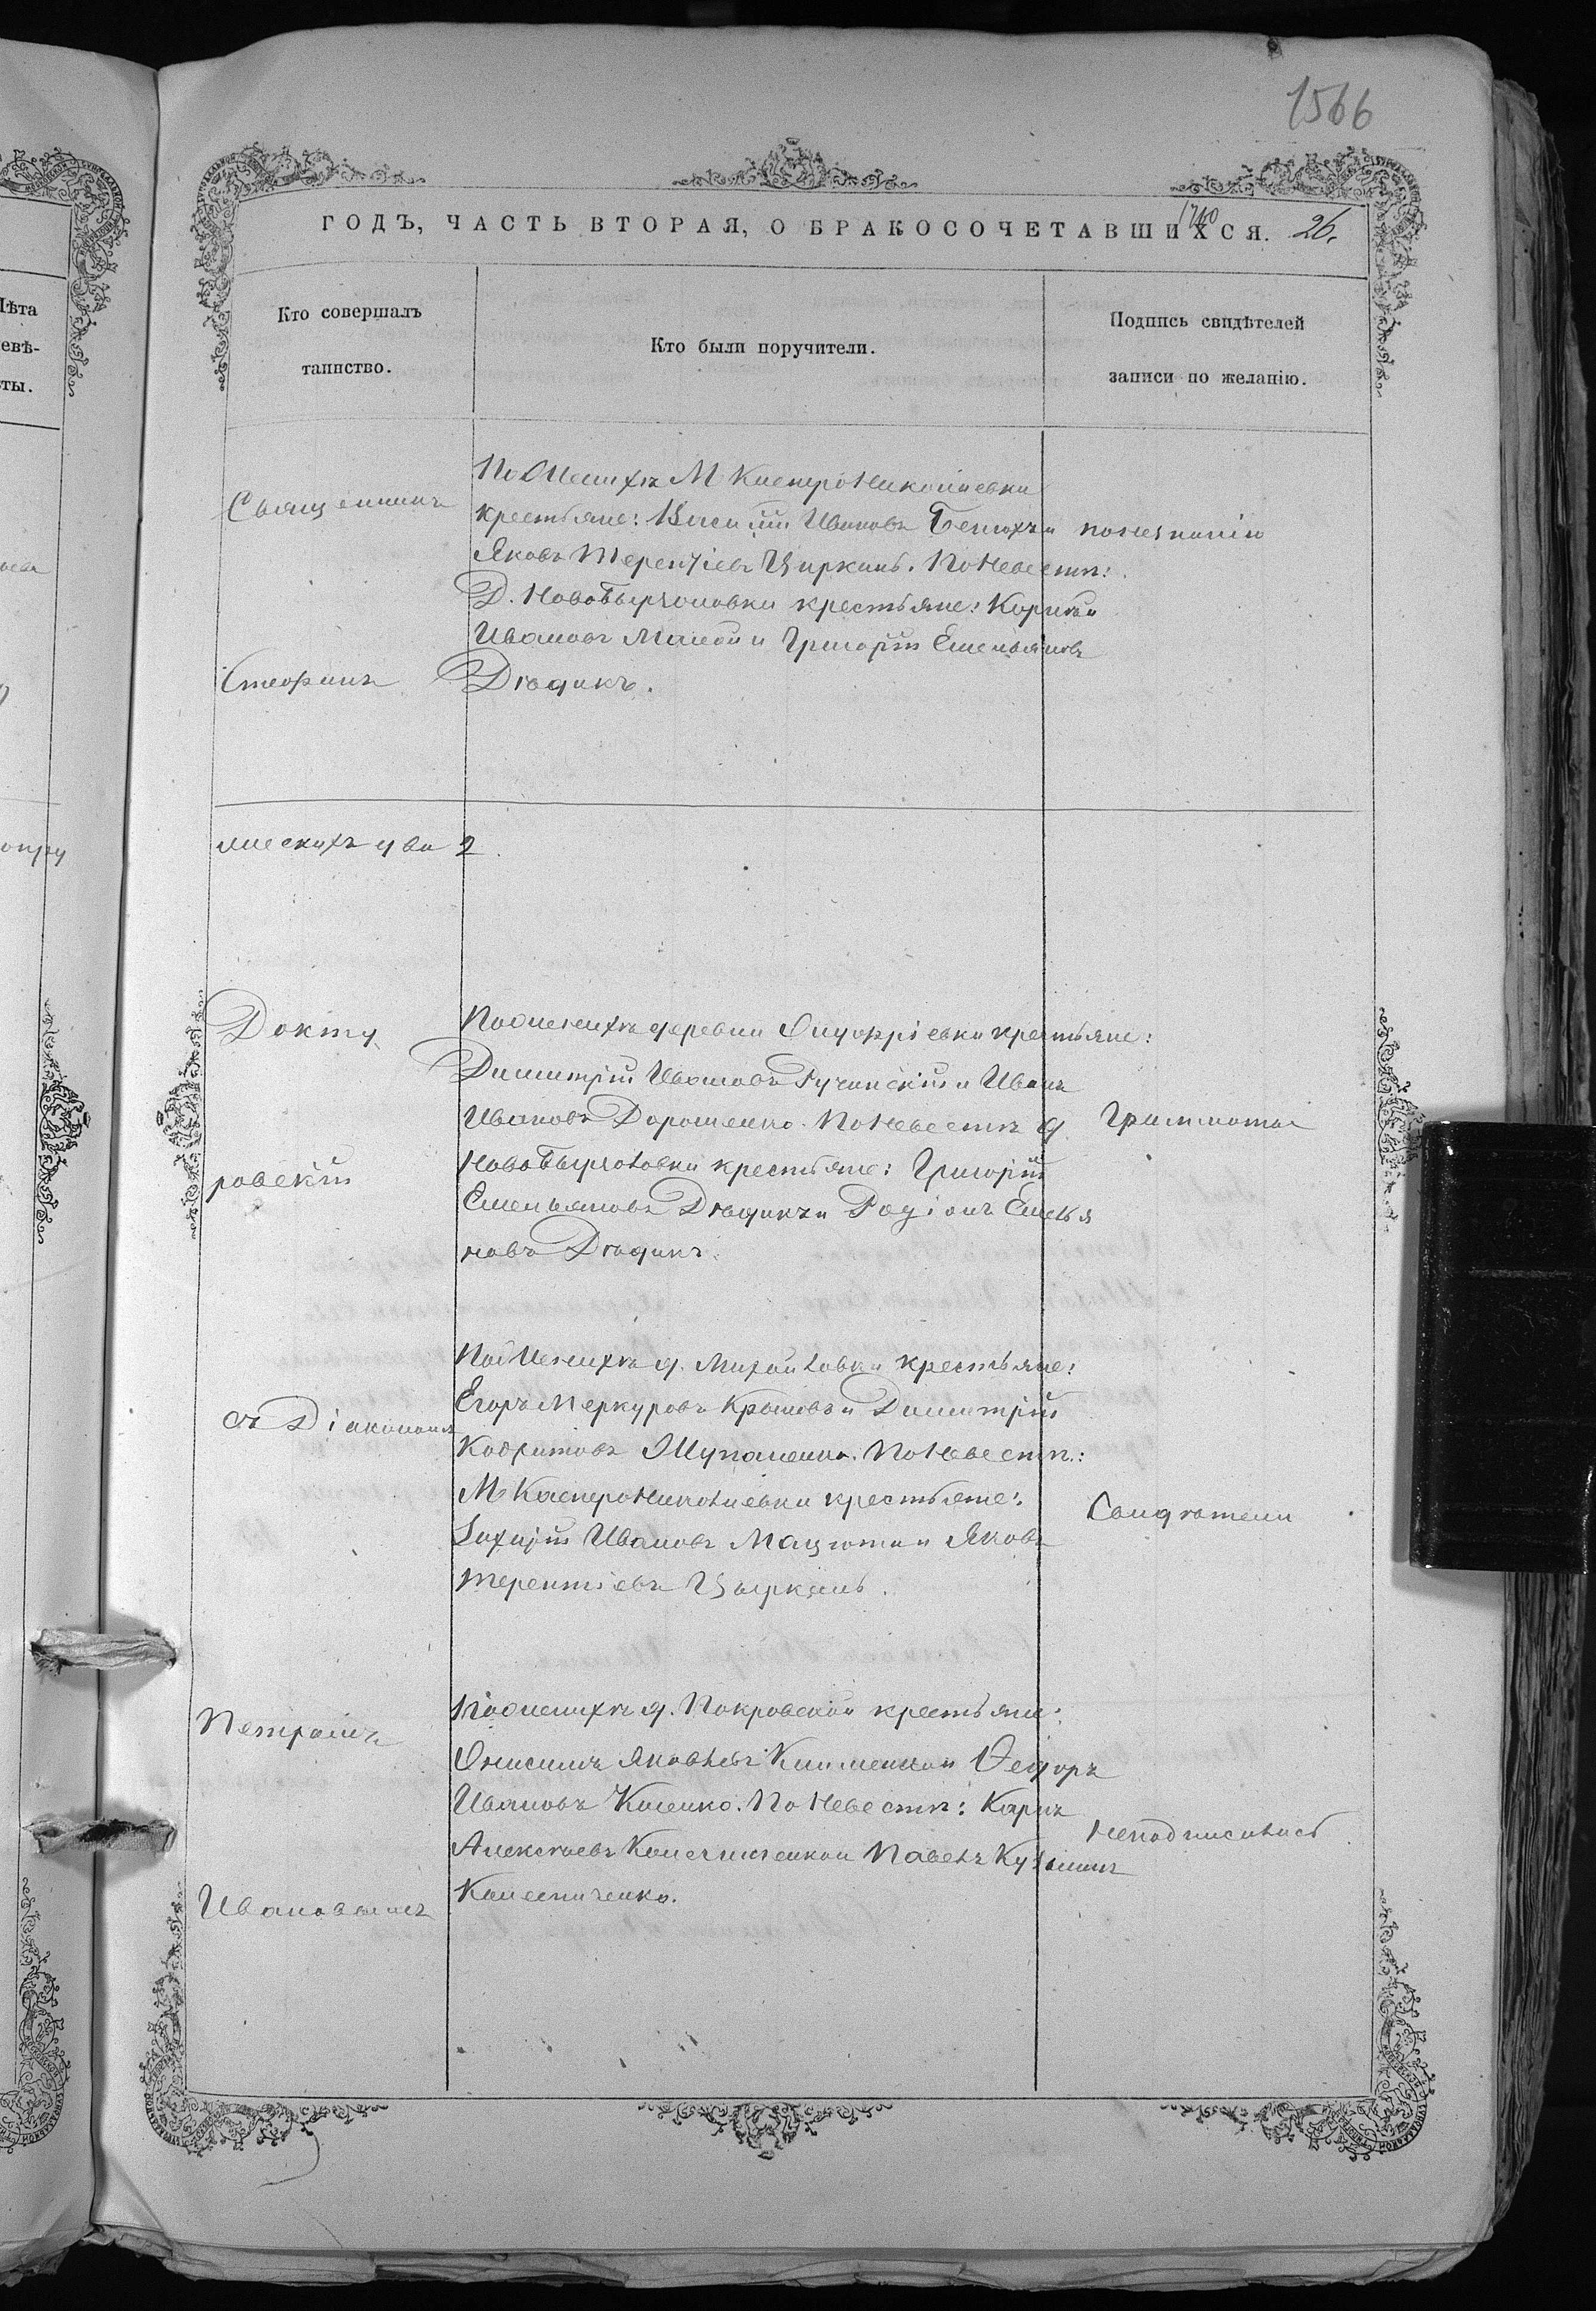 1566
1740
ГОДЪ, ЧАСТЬ ВТОРАЯ, О БРАКОСОЧЕТАВШИХСЯ. 26.
Лѣта
невѣ-
сты.
Кто совершалъ
таинство.
Кто были поручители.
Подпись свидѣтелей
записи по желанію.
Священникъ
Стефанъ
По Женихѣ М Касперо Николаевки
крестьяне: Василій Ивановъ и
Яковъ Терентіевъ Циркинъ. По Невестѣ:
Д. Ново крестьяне: Корнѣй
Ивановъ Малой и Григорій Емельяновъ
Дюдикъ.
по незнанію
мужескихъ два 2.
Докту
ровскій
По женихѣ деревни Онуфріевки крестьяне:
Димитрій Ивановъ Ручинскій и Иванъ
Ивановъ Дорошенко. По Невестѣ д.
Ново крестьяне: Григорій
Емельяновъ Дюдикъ и Родіонъ Емелья
новъ Дюдикъ.
Граммоты
съ Діакономъ
По Женихѣ д. Михайловки крестьяне:
Егоръ Меркуровъ и Димитрій
Кодратовъ Шупаленко. По Невестѣ:
М Касперо Николаевки крестьяне:
Захарій Ивановъ Мацюта и Яковъ
Терентіевъ Цыркинъ.
Свидѣтели
Петромъ
Ивановымъ
По женихѣ д. Покровской крестьяне:
Онисимъ Яковлевъ Клименко и Ѳедоръ
Ивановъ Коленко. По Невестѣ: Карпъ
Алексѣевъ Колесниченко и Павелъ Кузьминъ
Колесниченко.
неподписались